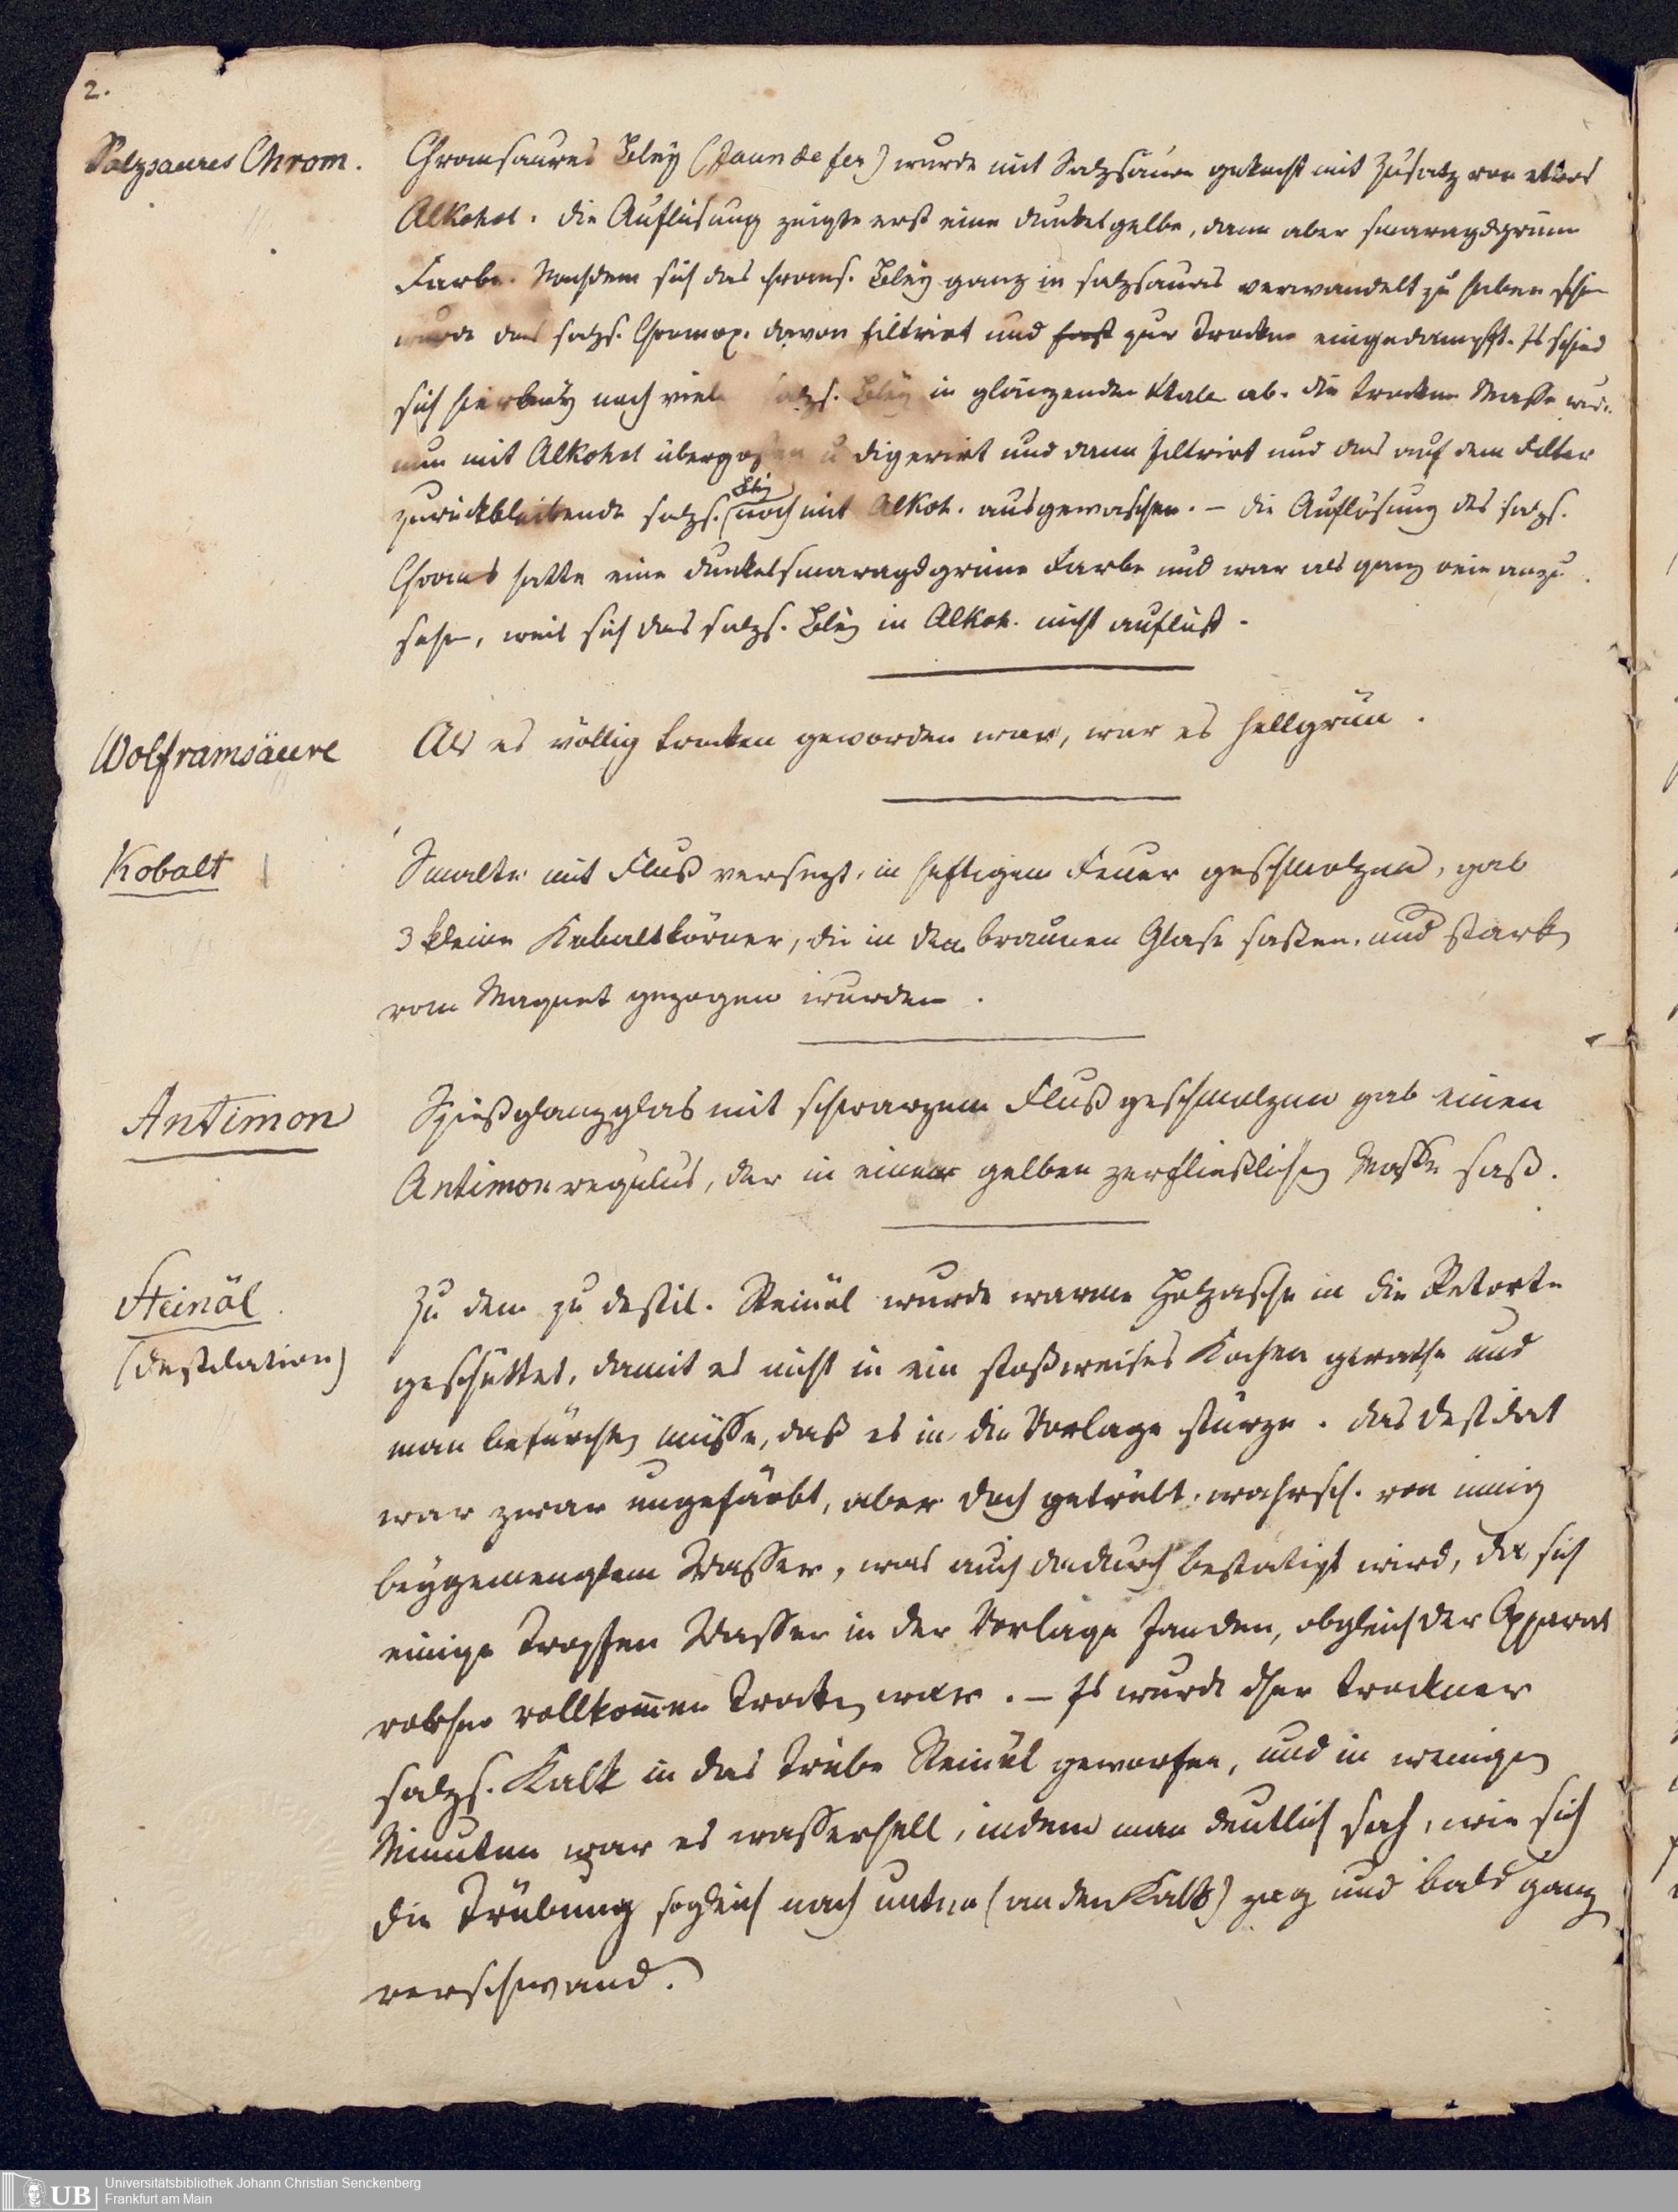 2.
Salzsaures Chrom.
Chromsaures Bley (Jaune de fer) wurde mit Salzsäure gekocht mit Zusatz von etwas
Alkohol. die Auflösung zeigte erst eine dunkelgelbe, dann aber smaragdgrüne
Farbe. Nachdem sich das chroms. Bley ganz in salzsaures verwandelt zu haben schien
wurde das salzs. Chromox. davon filtrirt und fast zur Trockne eingedampft. Es schied
sich hierbey noch viel salzs. Bley in glänzenden ab. die trockne Masse wurde
nun mit Alkohol übergossen u digerirt und dann filtrirt und das auf dem Filter
zurückbleibende salzs. Bley noch mit Alkoh. ausgewaschen. – die Auflösung des salzs.
Chroms hatte eine dunkelsmaragdgrüne Farbe und war als ganz rein anzu
sehen, weil sich das salzs. Bley in Alkoh. nicht auflöst.
Wolframsäure
Als es völlig trocken geworden war, war es hellgrün.
Kobalt
Smalte mit Fluß versezt, in heftigem Feuer geschmolzen, gab
3 kleine Kobaltkörner, die in dem braunen Glase saßen, und stark
vom Magnet gezogen wurden.
Antimon
Spießglanzglas mit schwarzem Fluß geschmolzen gab einen
Antimonregulus, der in einer gelben zerfließlichen Masse saß.
Steinöl.
(Destilation)
Zu dem zu destil. Steinöl wurde warme Holzasche in die Retorte
geschüttet, damit es nicht in ein stoßweises Kochen gerathe und
man befürchten müsse, daß es in die Vorlage stürze. das Destilat
war zwar ungefärbt, aber doch getrübt, wahrsch. von innig
beygemengtem Wasser, was auch dadurch bestätigt wird, da sich
einige Tropfen Wasser in der Vorlage fanden, obgleich der Apparat
vorher vollkom̅en trocken war. – Es wurde daher trockner
salzs. Kalk in das trübe Steinöl geworfen, und in wenigen
Minuten war es wasserhell, indem man deutlich sah, wie sich
die Trübung sogleich nach unten (an den Kalk) zog und bald ganz
verschwand.
Universitätsbibliothek Johann Christian Senckenberg
Frankfurt am Main
UB